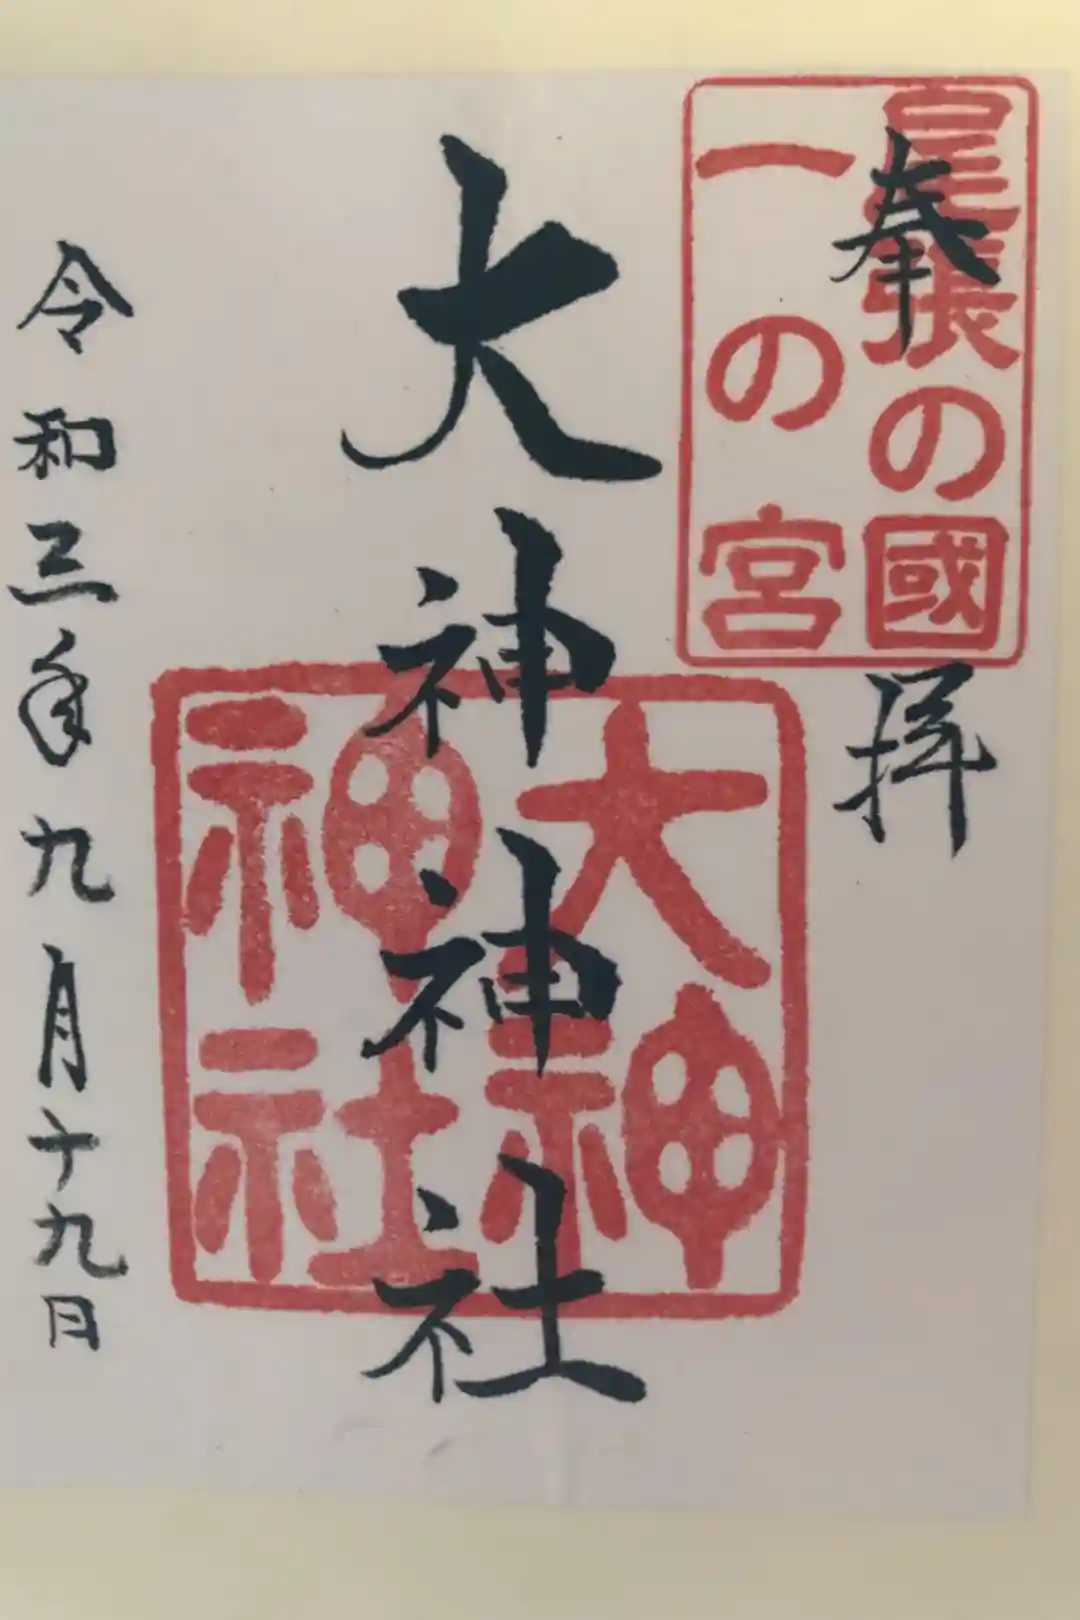 尾張の國
一の宮
奉拝
大神神社
大神
神社
令和三年九月十九日